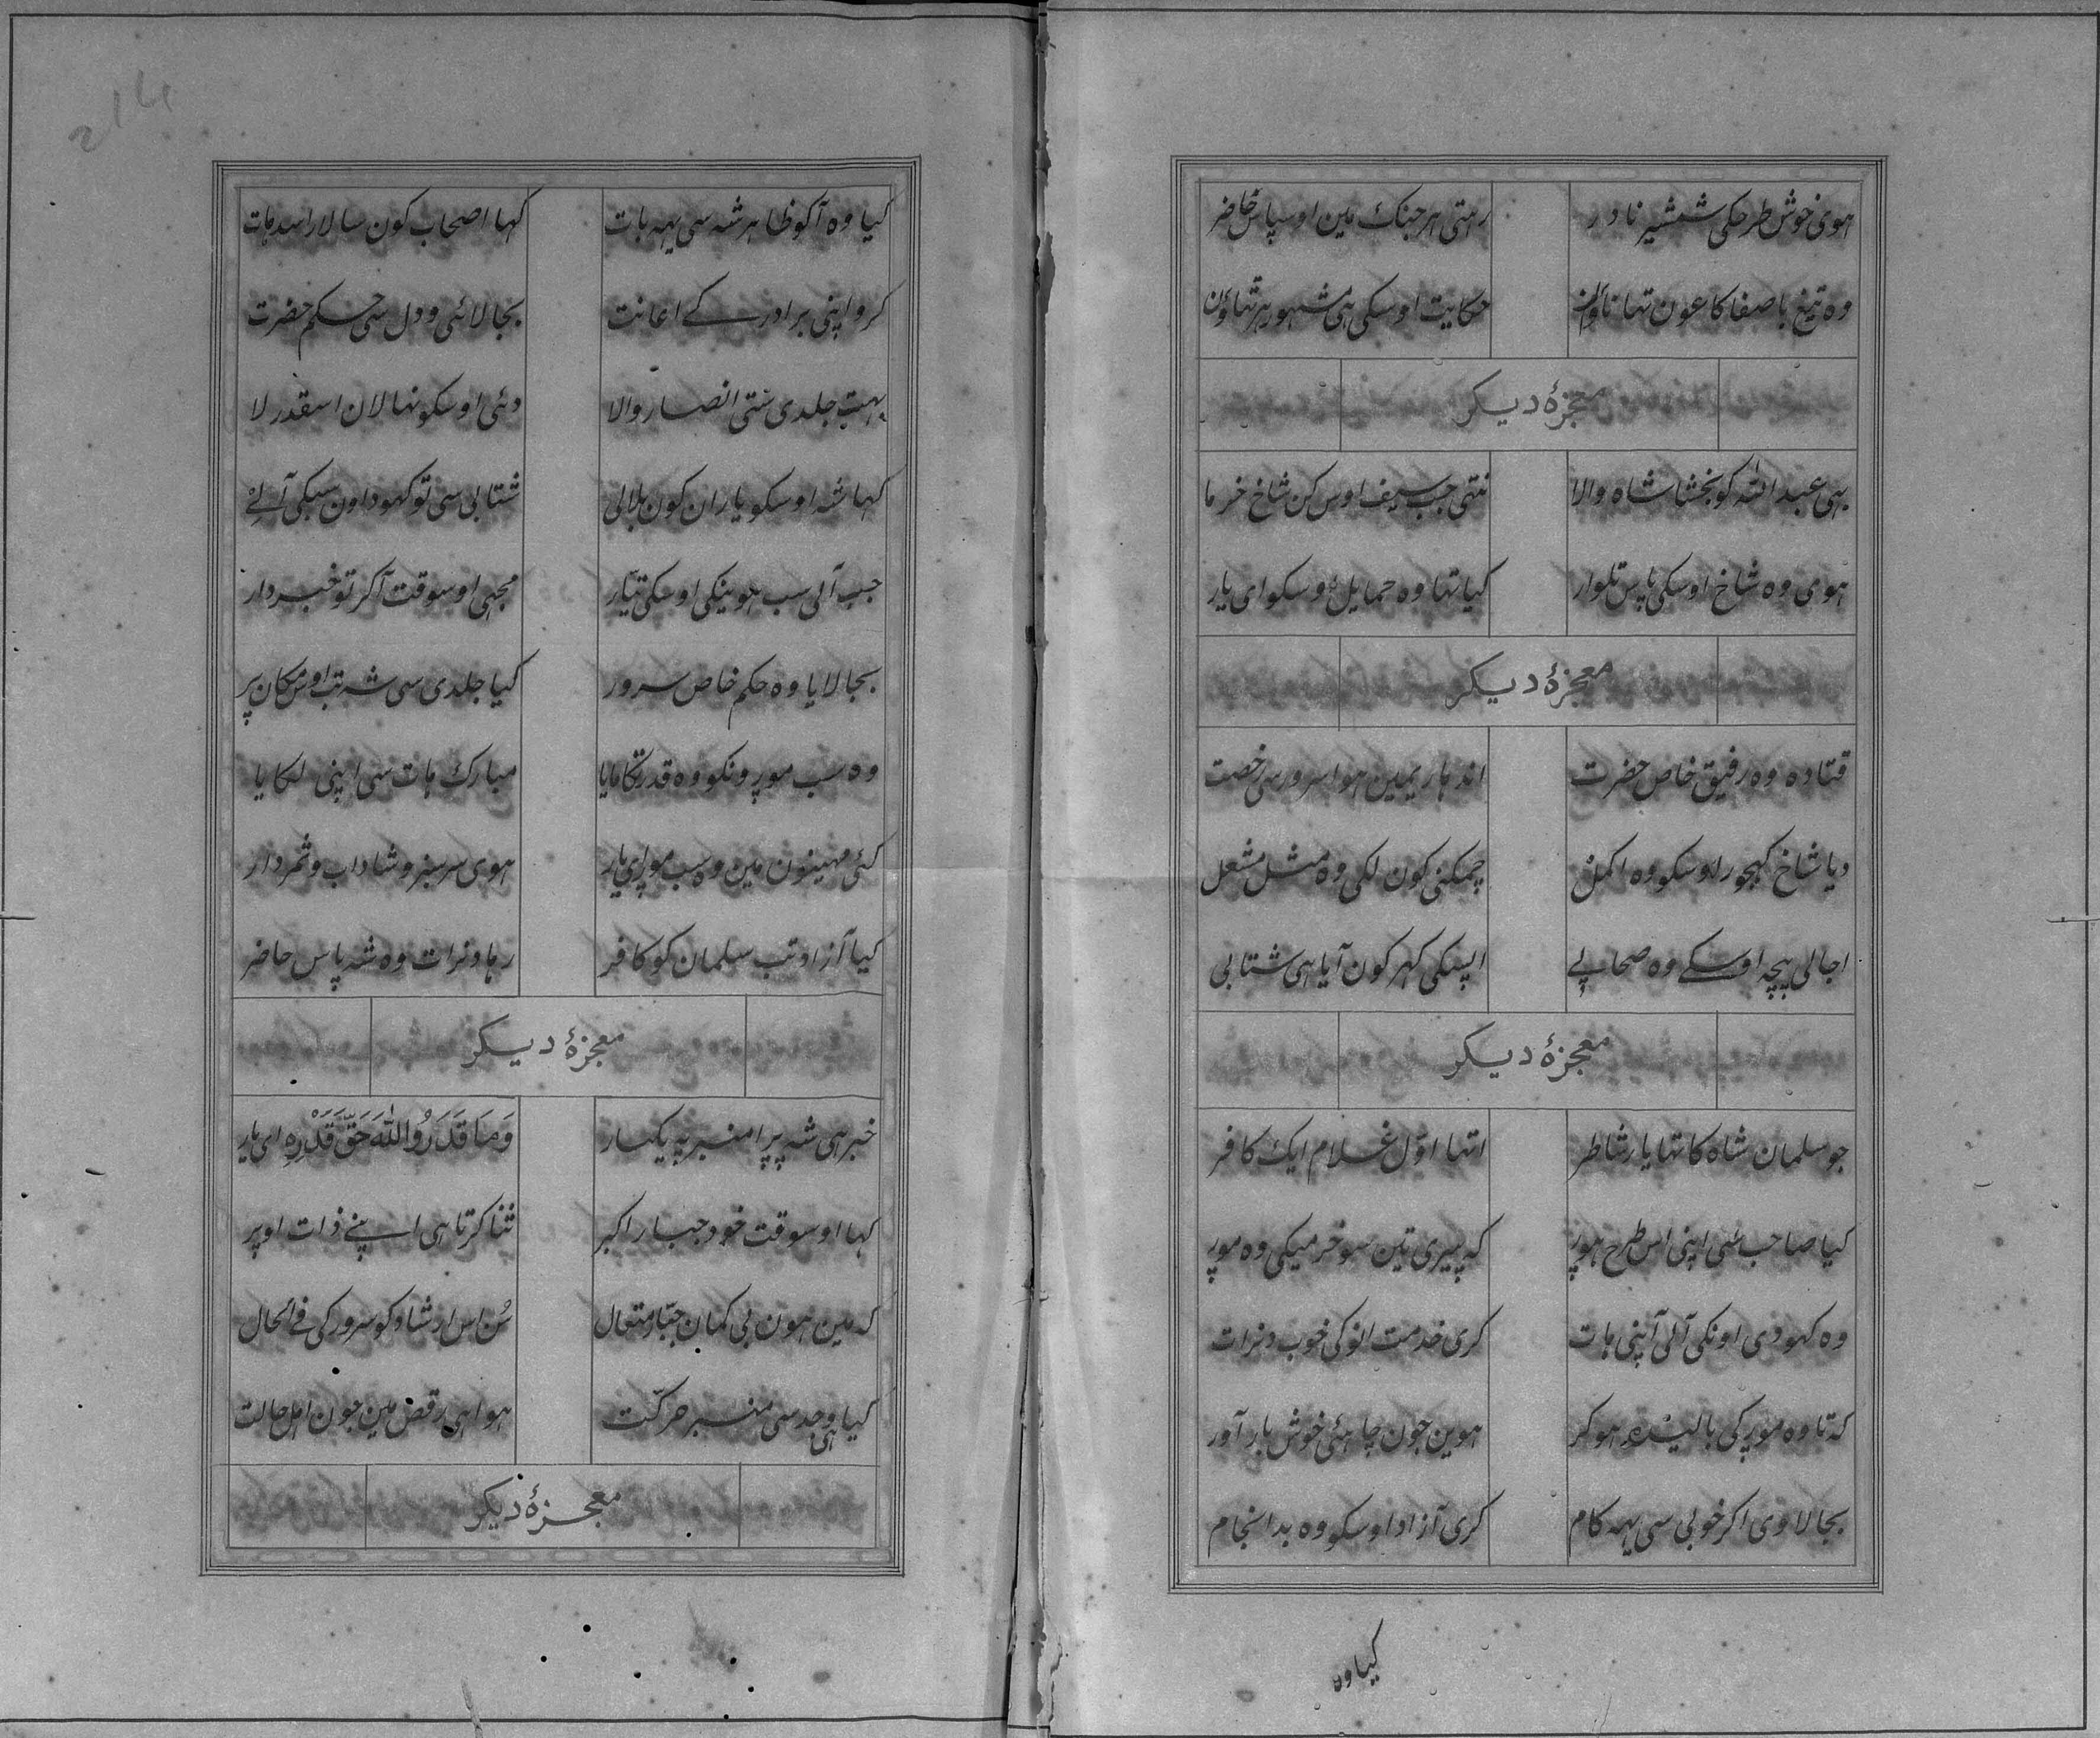 ہوی خوش طرحکی شمشیر نادر رہتی ہر جنک مین اوسپاس حاضر
وہ تیغ باصفا کا عون تہا ناؤن حکایت اوسکی ہی مشہور ہر ٹہاؤن
معجزۂ دیکر
یہی عبد اللہ کو بخشا شاہ والا نتہی جب سیف اوس کن شاخ خرما
ہوی وہ شاخ اوسکی پاس تلوار کیا تہا وہ حمایل اوسکو ای یار
معجزۂ دیکر
قتادہ وہ رفیق خاص حضرت اندہاریمین ہوا سرور سی رخصت
دیا شاخ کہجور اوسکو وہ اکمل چمکنی کون لکی وہ مثل مشعل
اجالی بیچہ اوسکے وہ صحابی اپسکی کہر کون آیا ہی شتابی
معجزۂ دیکر
جو سلمان شاہ کا تہا یار شاطر اتہا اول غلام ایک کافر
کیا صاحب سی اپنی اس طرح مور کہ پیری تین سو خرمیکی وہ مور
وہ کہودی اونکی آلی آپنی ہات کری خدمت انو کی خوب دنرات
کہ تا وہ مور کی بالیدہ ہو کر ہوین جون چاہئی خوش بار آور
بجا لاوی اکر خوبی سی یہہ کام کری آزاد اوسکو وہ بد انجام
کیا وہ
کیا وہ آکو ظاہر شہ سی یہہ بات کہا اصحاب کون سالار سادات
کرو اپنی برادر کے اعانت بجا لائی و دل سی حکم حضرت
بہت جلدی ستی انصار والا دئی اوسکو نہالان اسقدر لا
کہا شہ اوسکو یاران کون بلالی شتابی سی تو کہود اون سبکی آلے
جب آلی سب ہوینکی اوسکی تیار مجہی اوسوقت آکر تو خبردار
بجا لایا وہ حکم خاص سرور کیا جلدی سی شہ تب اوس مکان پر
وہ سب مورونکو وہ قدرتکا مایا مبارک ہات سی اپنی لکایا
کئی مہینون مین وہ سب مور ای یار ہوی سرسبز و شاداب و ثمردار
کیا آزاد تب سلمان کو کافر رہا دنرات وہ شہ پاس حاضر
معجزۂ دیکر
خبر ہی شہ پرا منبر پہ یکبار وَمَا قَدَرُوا اللّٰهَ حَقَّ قَدْرِهِ ای یار
کہا اوسوقت خود جبار اکبر ثنا کرتا ہی اپنے ذات اوپر
کہ مین ہون بی کمان جبار متعال سُن اس ارشاد کو سرور کی فے الحال
کیا ہی وجد سی منبر حرکت ہوا ہی رقص مین جون اہل حالت
معجزۂ دیکر